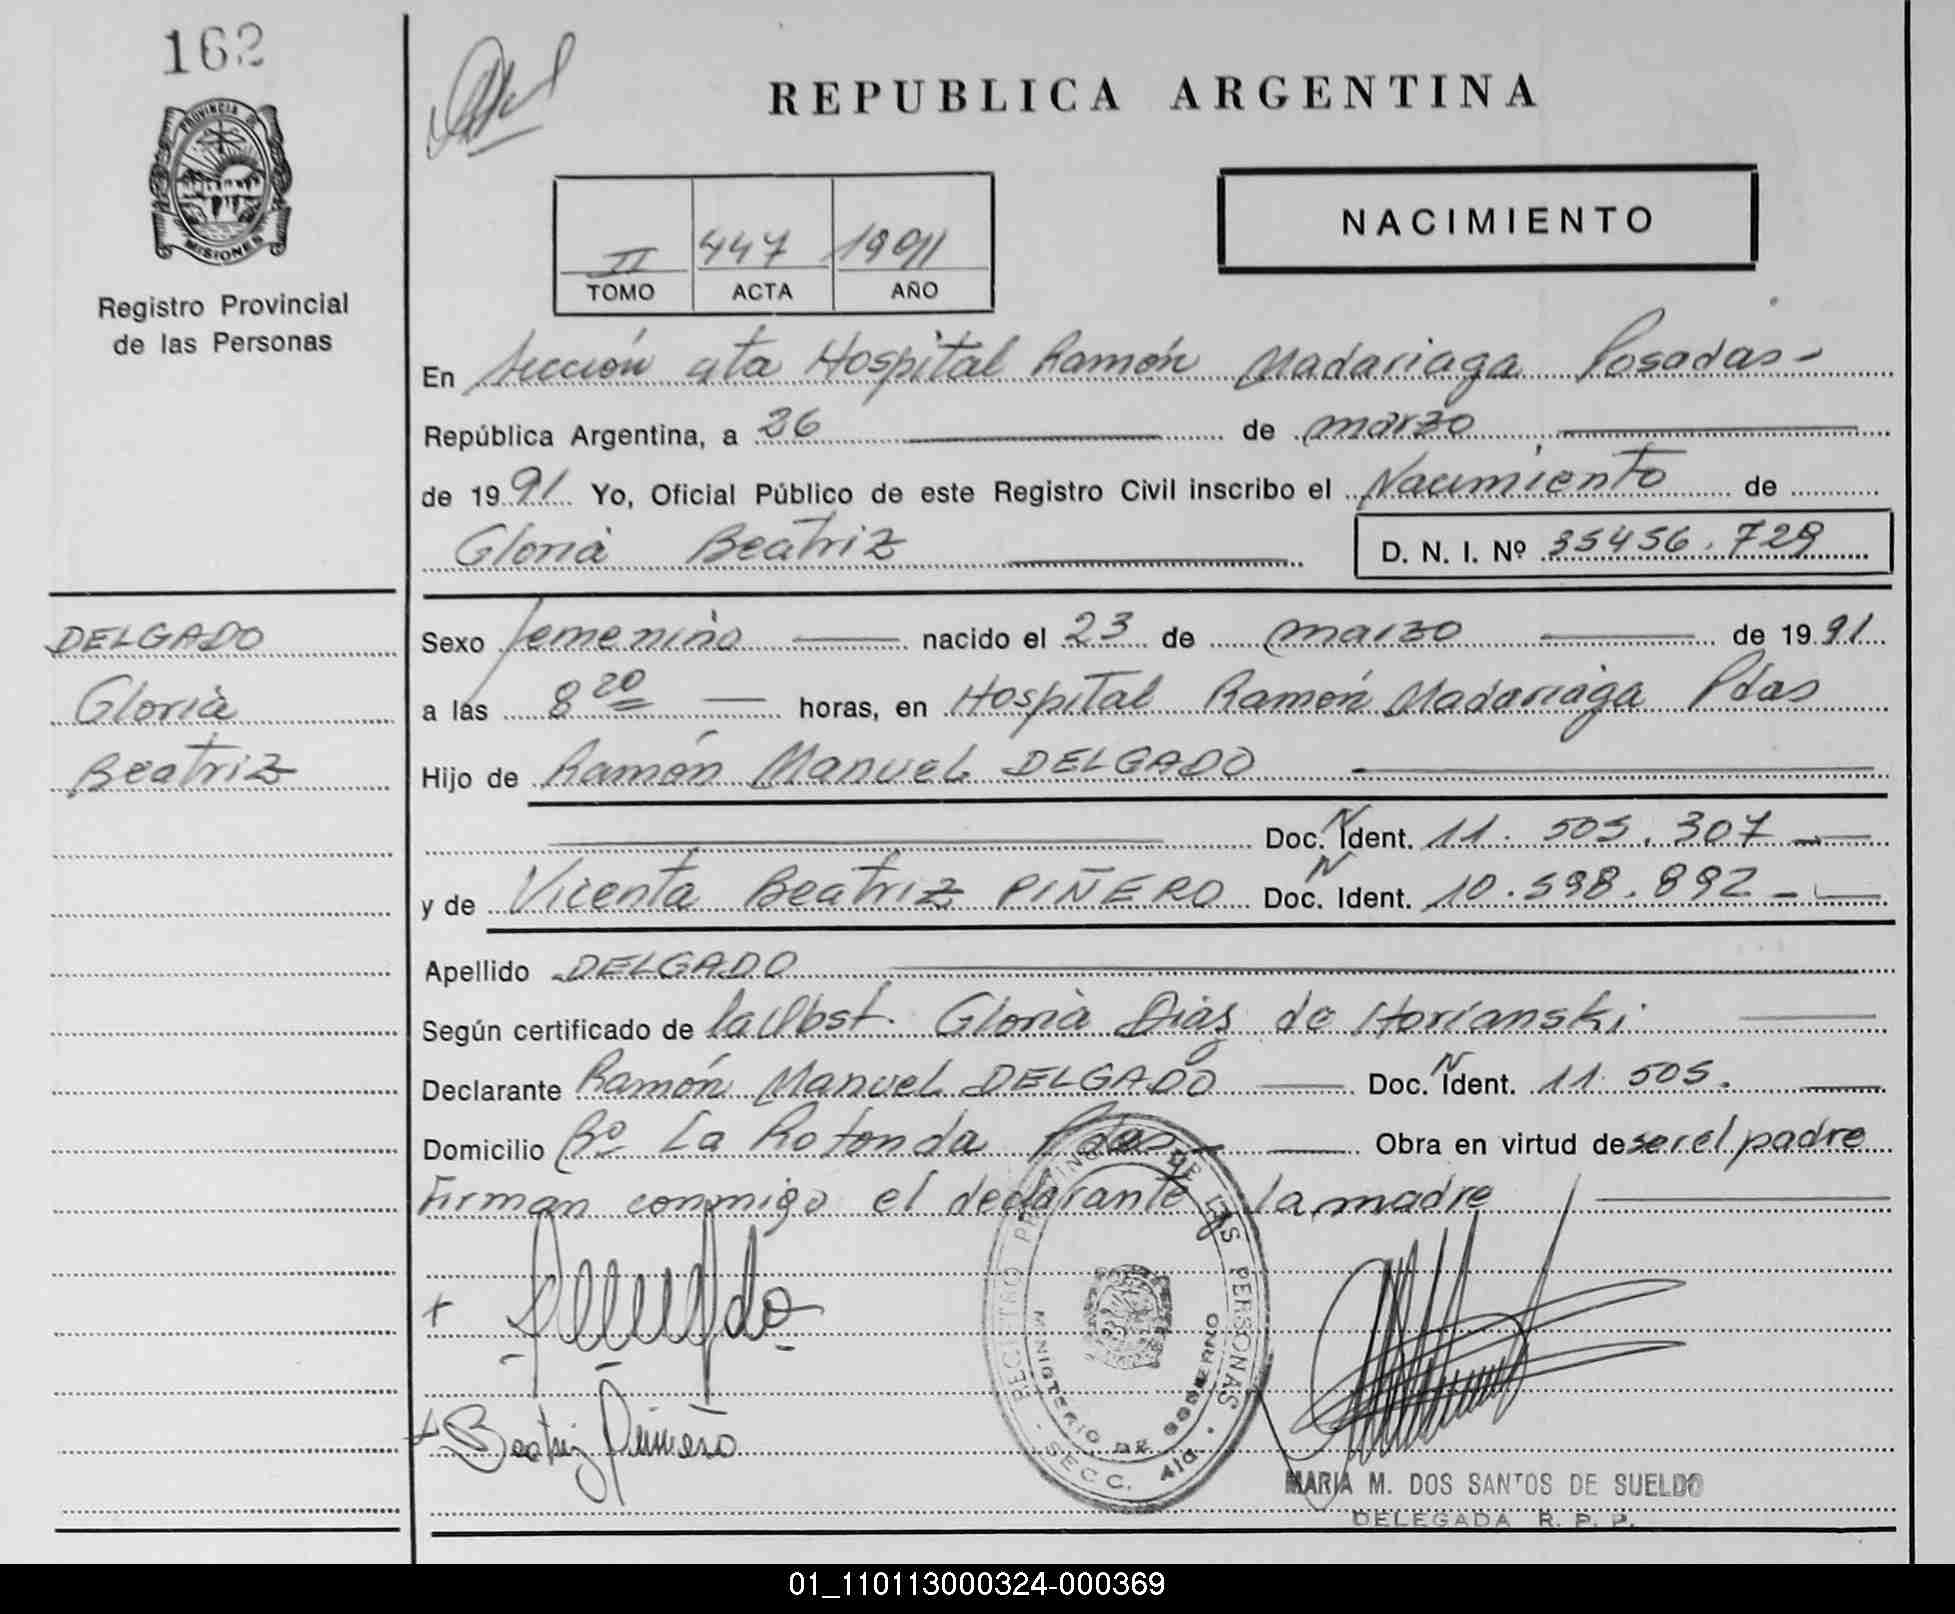 162
PROVINCIA DE
MISIONES
Registro Provincial
de las Personas
DELGADO
Gloria
Beatriz
REPUBLICA ARGENTINA
II 447 1991
TOMO ACTA AÑO
NACIMIENTO
En Sección 4ta Hospital Ramón Madariaga Posadas-
República Argentina, a 26 de marzo
de 1991 Yo, Oficial Público de este Registro Civil inscribo el Nacimiento de
Gloria Beatriz D. N. I. Nº 35456.729
Sexo femenino nacido el 23 de marzo de 1991
a las 8 20 horas, en Hospital Ramón Madariaga Pdas
Hijo de Ramón Manuel DELGADO
Doc. N Ident. 11.505.307
y de Vicenta Beatriz PIÑERO Doc. N Ident. 10.598.892-
Apellido DELGADO
Según certificado de la Obst. Gloria Diaz de Horianski
Declarante Ramón Manuel DELGADO Doc. N Ident. 11.505.
Domicilio Bº La Rotonda Pdas- Obra en virtud de ser el padre
Firman conmigo el declarante y la madre
REGISTRO PROVINCIAL DE LAS PERSONAS
MINISTERIO DE GOBIERNO
SECC. 4ta.
+
+ Beatriz Piñero
MARIA M. DOS SANTOS DE SUELDO
DELEGADA R. P. P.
01_110113000324-000369